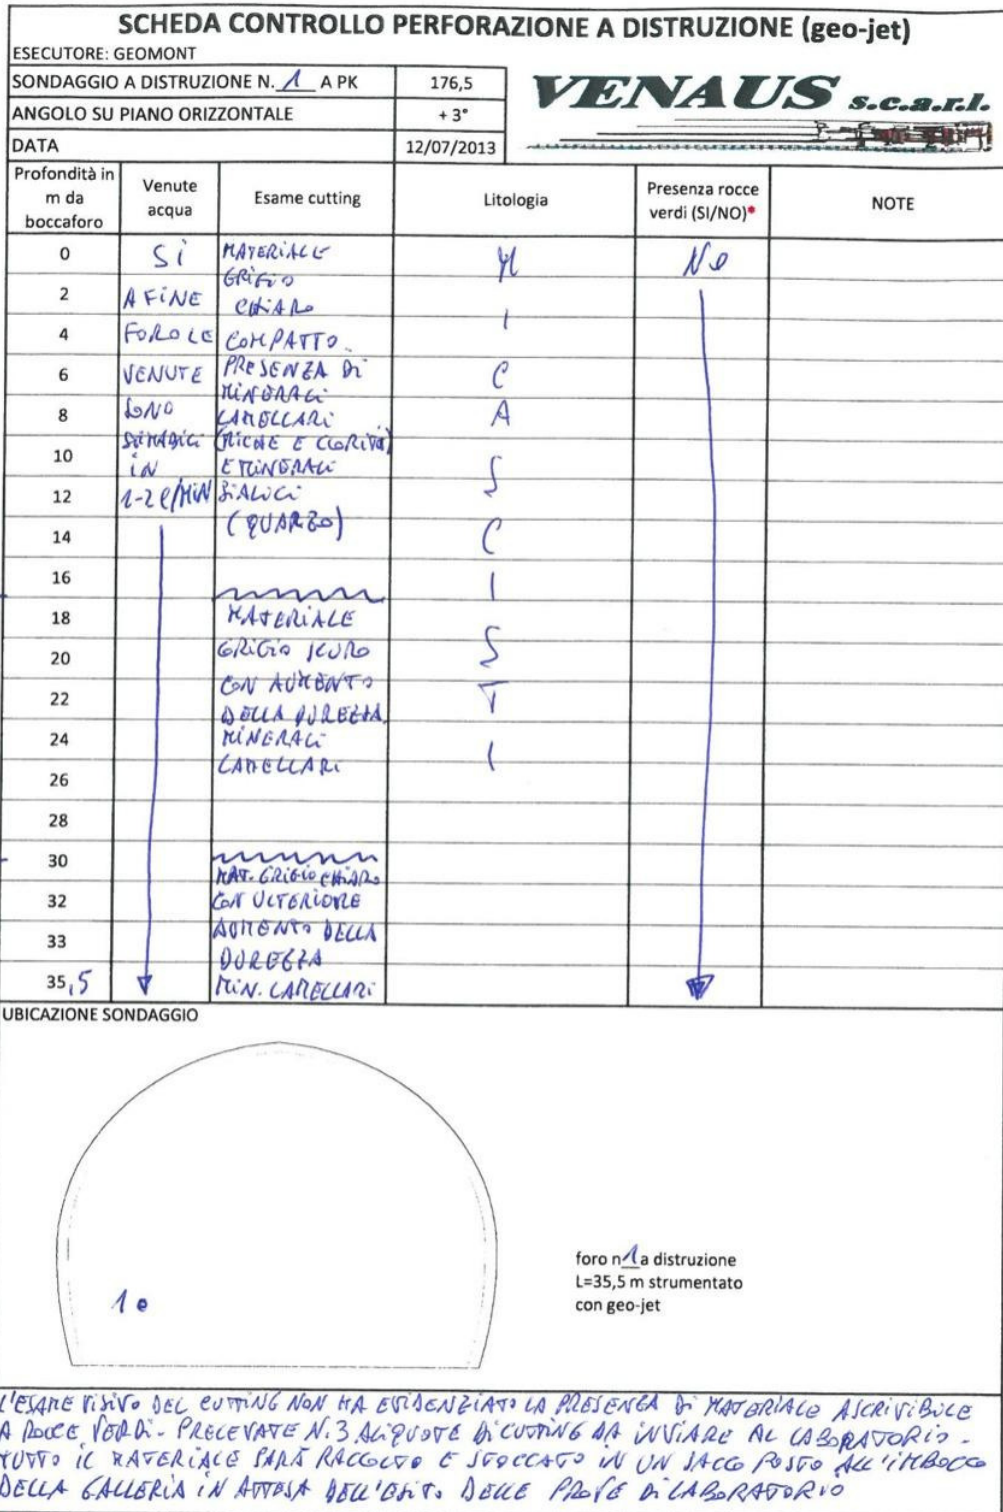 SCHEDA CONTROLLO PERFORAZIONE A DISTRUZIONE (geo-jet)
ESECUTORE: GEOMONT
SONDAGGIO A DISTRUZIONE N. 1 A PK 176,5
ANGOLO SU PIANO ORIZZONTALE + 3°
DATA 12/07/2013
VENAUS s.c.a.r.l.
Profondità in m da boccaforo
Venute acqua
Esame cutting
Litologia
Presenza rocce verdi (SI/NO)*
NOTE
0
2
4
6
8
10
12
14
16
18
20
22
24
26
28
30
32
33
35,5
SÌ
A FINE
FORO LE
VENUTE
SONO
IN
1-2 l/MIN
MATERIALE
GRIGIO
CHIARO
COMPATTO.
PRESENZA DI
MINERALI
LAMELLARI
(MICHE E CLORITE)
E MINERALI
SIALICI
(QUARZO)
MATERIALE
GRIGIO SCURO
CON AUMENTO
DELLA DUREZZA
MINERALI
LAMELLARI
MAT. GRIGIO CHIARO
CON ULTERIORE
AUMENTO DELLA
DUREZZA
MIN. LAMELLARI
M
I
C
A
S
C
I
S
T
I
No
UBICAZIONE SONDAGGIO
1
foro n 1 a distruzione
L=35,5 m strumentato
con geo-jet
L'ESAME VISIVO DEL CUTTING NON HA EVIDENZIATO LA PRESENZA DI MATERIALE ASCRIVIBILE
A ROCCE VERDI - PRELEVATE N. 3 ALIQUOTE DI CUTTING DA INVIARE AL LABORATORIO -
TUTTO IL MATERIALE SARÀ RACCOLTO E STOCCATO IN UN SACCO POSTO ALL'IMBOCCO
DELLA GALLERIA IN ATTESA DELL'ESITO DELLE PROVE DI LABORATORIO